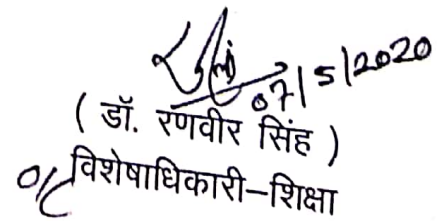 07/5/2020
( डॉ. रणवीर सिंह )
विशेषाधिकारी–शिक्षा